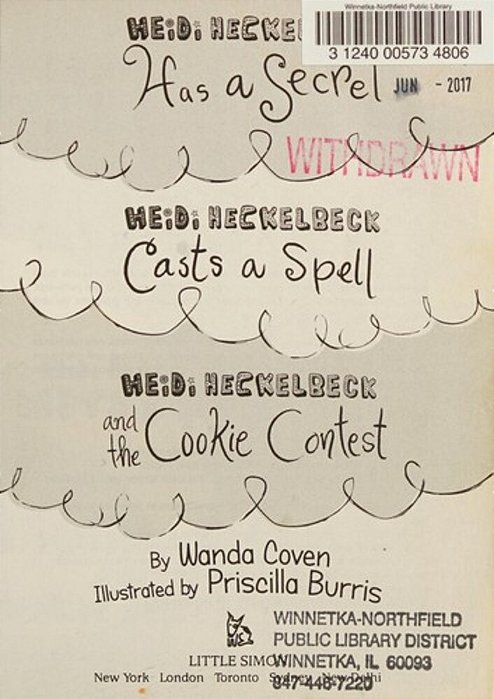 Winnetka-Northfield Public Library
3 1240 00573 4806
HEIDI HECKE
Has a Secret
JUN - 2017
WITHDRAWN
HEIDI HECKELBECK
Casts a Spell
HEIDI HECKELBECK
and the Cookie Contest
By Wanda Coven
Illustrated by Priscilla Burris
WINNETKA-NORTHFIELD
PUBLIC LIBRARY DISTRICT
LITTLE SIMON
WINNETKA, IL 60093
New York London Toronto Sydney New Delhi
847-446-7220